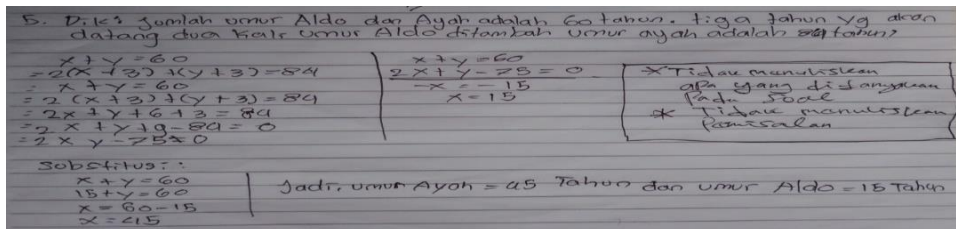 5. Dik: Jumlah umur Aldo dan Ayah adalah 60 tahun. tiga tahun yg akan
datang dua kali umur Aldo ditambah umur ayah adalah 84 tahun?
x + y = 60
= 2(x + 3) + (y + 3) = 84
= x + y = 60
= 2 (x + 3) + (y + 3) = 84
= 2x + y + 6 + 3 = 84
= 2x + y + 9 - 84 = 0
= 2x y - 75 = 0
x + y = 60
2x + y - 75 = 0
-x = -15
x = 15
* Tidak menuliskan
apa yang ditanyakan
Pada Soal
* Tidak menuliskan
Pemisalan
Substitusi:
x + y = 60
15 + y = 60
x = 60 - 15
x = 45
Jadi, umur Ayah = 45 Tahun dan umur Aldo = 15 Tahun